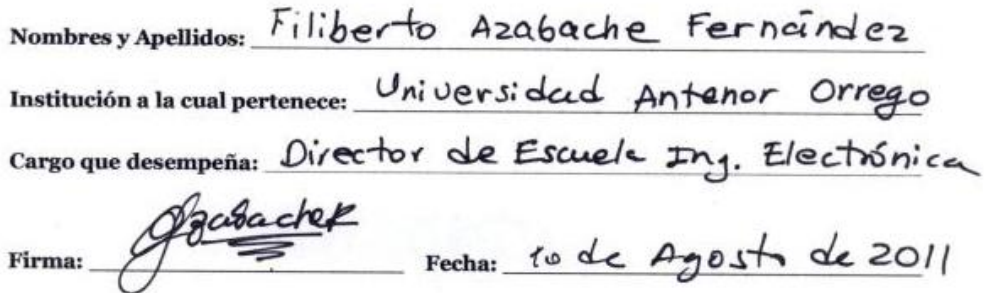 Nombres y Apellidos: Filiberto Azabache Fernández
Institución a la cual pertenece: Universidad Antenor Orrego
Cargo que desempeña: Director de Escuela Ing. Electrónica
Firma: Azabache Fecha: 10 de Agosto de 2011